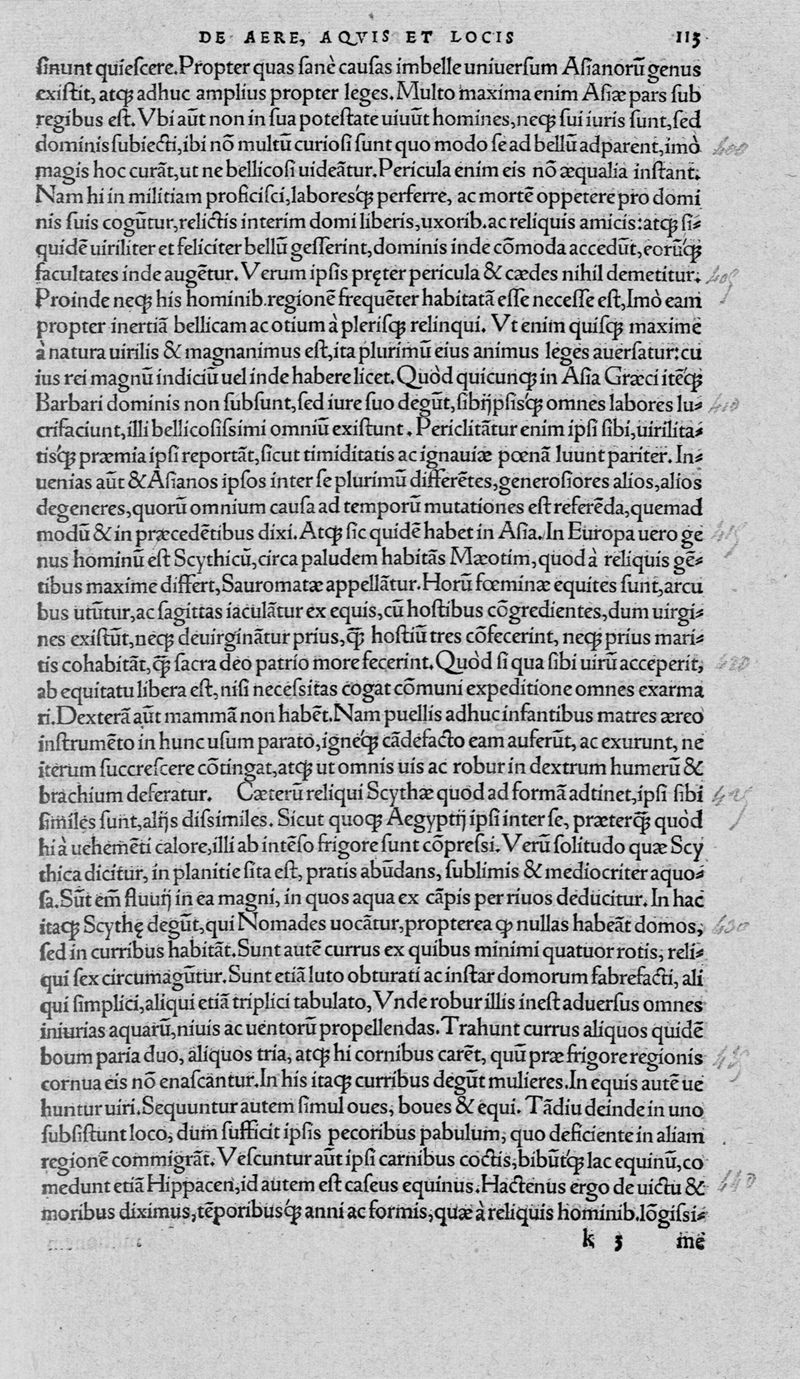 DE AERE, AQVIS ET LOCIS 115
ſinunt quieſcere.Propter quas ſanè cauſas imbelle uniuerſum Aſianorũ genus
exiſtit, atq́ꝫ adhuc amplius propter leges.Multo maxima enim Aſiæ pars ſub
regibus eſt. Vbi aũt non in ſua poteſtate uiuũt homines,neqꝫ ſui iuris ſunt,ſed
dominis ſubiecti,ibi nõ multũ curioſi ſunt quo modo ſe ad bellũ adparent,imò
magis hoc curãt,ut ne bellicoſi uideãtur.Pericula enim eis nõ æqualia inſtant.
Nam hi in militiam proficiſci,laboresq́ꝫ perferre, ac mortẽ oppetere pro domi
nis ſuis cogũtur,relictis interim domi liberis,uxorib.ac reliquis amicis:atqꝫ ſi⸗
quidẽ uiriliter et feliciter bellũ geſſerint,dominis inde cõmoda accedũt,eorũq́ꝫ
facultates inde augẽtur. Verum ipſis pręter pericula & cædes nihil demetitur.
Proinde neqꝫ his hominib.regionẽ frequẽter habitatã eſſe neceſſe eſt,Imò eam
propter inertiã bellicam ac otium à pleriſqꝫ relinqui. Vt enim quiſqꝫ maxime
à natura uirilis & magnanimus eſt,ita plurimũ eius animus leges auerſatur:cu
ius rei magnũ indiciũ uel inde habere licet.Quòd quicunqꝫ in Aſia Græci itẽqꝫ
Barbari dominis non ſubſunt,ſed iure ſuo degũt,ſibijpſisq́ꝫ omnes labores lu⸗
crifaciunt,illi bellicoſiſsimi omniũ exiſtunt. Periclitãtur enim ipſi ſibi,uirilita⸗
tisq́ꝫ præmia ipſi reportãt,ſicut timiditatis ac ignauiæ pœnã luunt pariter. In⸗
uenias aũt & Aſianos ipſos inter ſe plurimũ differẽtes,generoſiores alios,alios
degeneres,quorũ omnium cauſa ad temporũ mutationes eſt referẽda,quemad
modũ & in præcedẽtibus dixi.Atqꝫ ſic quidẽ habet in Aſia. In Europa uero ge
nus hominũ eſt Scythicũ,circa paludem habitãs Mæotim,quod à reliquis gẽ⸗
tibus maxime differt,Sauromatæ appellãtur.Horũ fœminæ equites ſunt,arcu
bus utũtur,ac ſagittas iaculãtur ex equis,cũ hoſtibus cõgredientes,dum uirgi⸗
nes exiſtũt,neqꝫ deuirginãtur prius,q̃ꝫ hoſtiũ tres cõfecerint, neqꝫ prius mari⸗
tis cohabitãt,q̃ꝫ ſacra deo patrio more fecerint.Quòd ſi qua ſibi uirũ acceperit,
ab equitatu libera eſt,niſi neceſsitas cogat cõmuni expeditione omnes exarma
ri.Dexterã aũt mammã non habẽt.Nam puellis adhuc infantibus matres æreo
inſtrumẽto in hunc uſum parato,igneq́ꝫ cãdefacto eam auferũt, ac exurunt, ne
iterum ſuccreſcere cõtingat,atqꝫ ut omnis uis ac robur in dextrum humerũ &
brachium deferatur. Cæterũ reliqui Scythæ quod ad formã adtinet,ipſi ſibi
ſimiles ſunt,alijs diſsimiles. Sicut quoqꝫ Aegyptij ipſi inter ſe, præterq̃ꝫ quòd
hi à uehemẽti calore,illi ab intẽſo frigore ſunt cõpreſsi. Verũ ſolitudo quæ Scy
thica dicitur, in planitie ſita eſt, pratis abũdans, ſublimis & mediocriter aquo⸗
ſa.Sũt em̃ fluuij in ea magni, in quos aqua ex cãpis per riuos deducitur. In hac
itaqꝫ Scythę degũt,qui Nomades uocãtur,propterea ꝙ nullas habeãt domos,
ſed in curribus habitãt.Sunt autẽ currus ex quibus minimi quatuor rotis, reli⸗
qui ſex circumagũtur.Sunt etiã luto obturati ac inſtar domorum fabrefacti, ali
qui ſimplici,aliqui etiã triplici tabulato, Vnde robur illis ineſt aduerſus omnes
iniurias aquarũ,niuis ac uentorũ propellendas.Trahunt currus aliquos quidẽ
boum paria duo, aliquos tria, atqꝫ hi cornibus carẽt, quũ præ frigore regionis
cornua eis nõ enaſcantur.In his itaqꝫ curribus degũt mulieres.In equis autẽ ue
huntur uiri.Sequuntur autem ſimul oues, boues & equi. Tãdiu deinde in uno
ſubſiſtunt loco, dum ſufficit ipſis pecoribus pabulum, quo deficiente in aliam
regionẽ commigrãt. Veſcuntur aũt ipſi carnibus coctis,bibũtq́ꝫ lac equinũ,co
medunt etiã Hippacen,id autem eſt caſeus equinus.Hactenus ergo de uictu &
moribus diximus,tẽporibusq́ꝫ anni ac formis,quæ à reliquis hominib.lõgiſsi⸗
k 3 mẽ